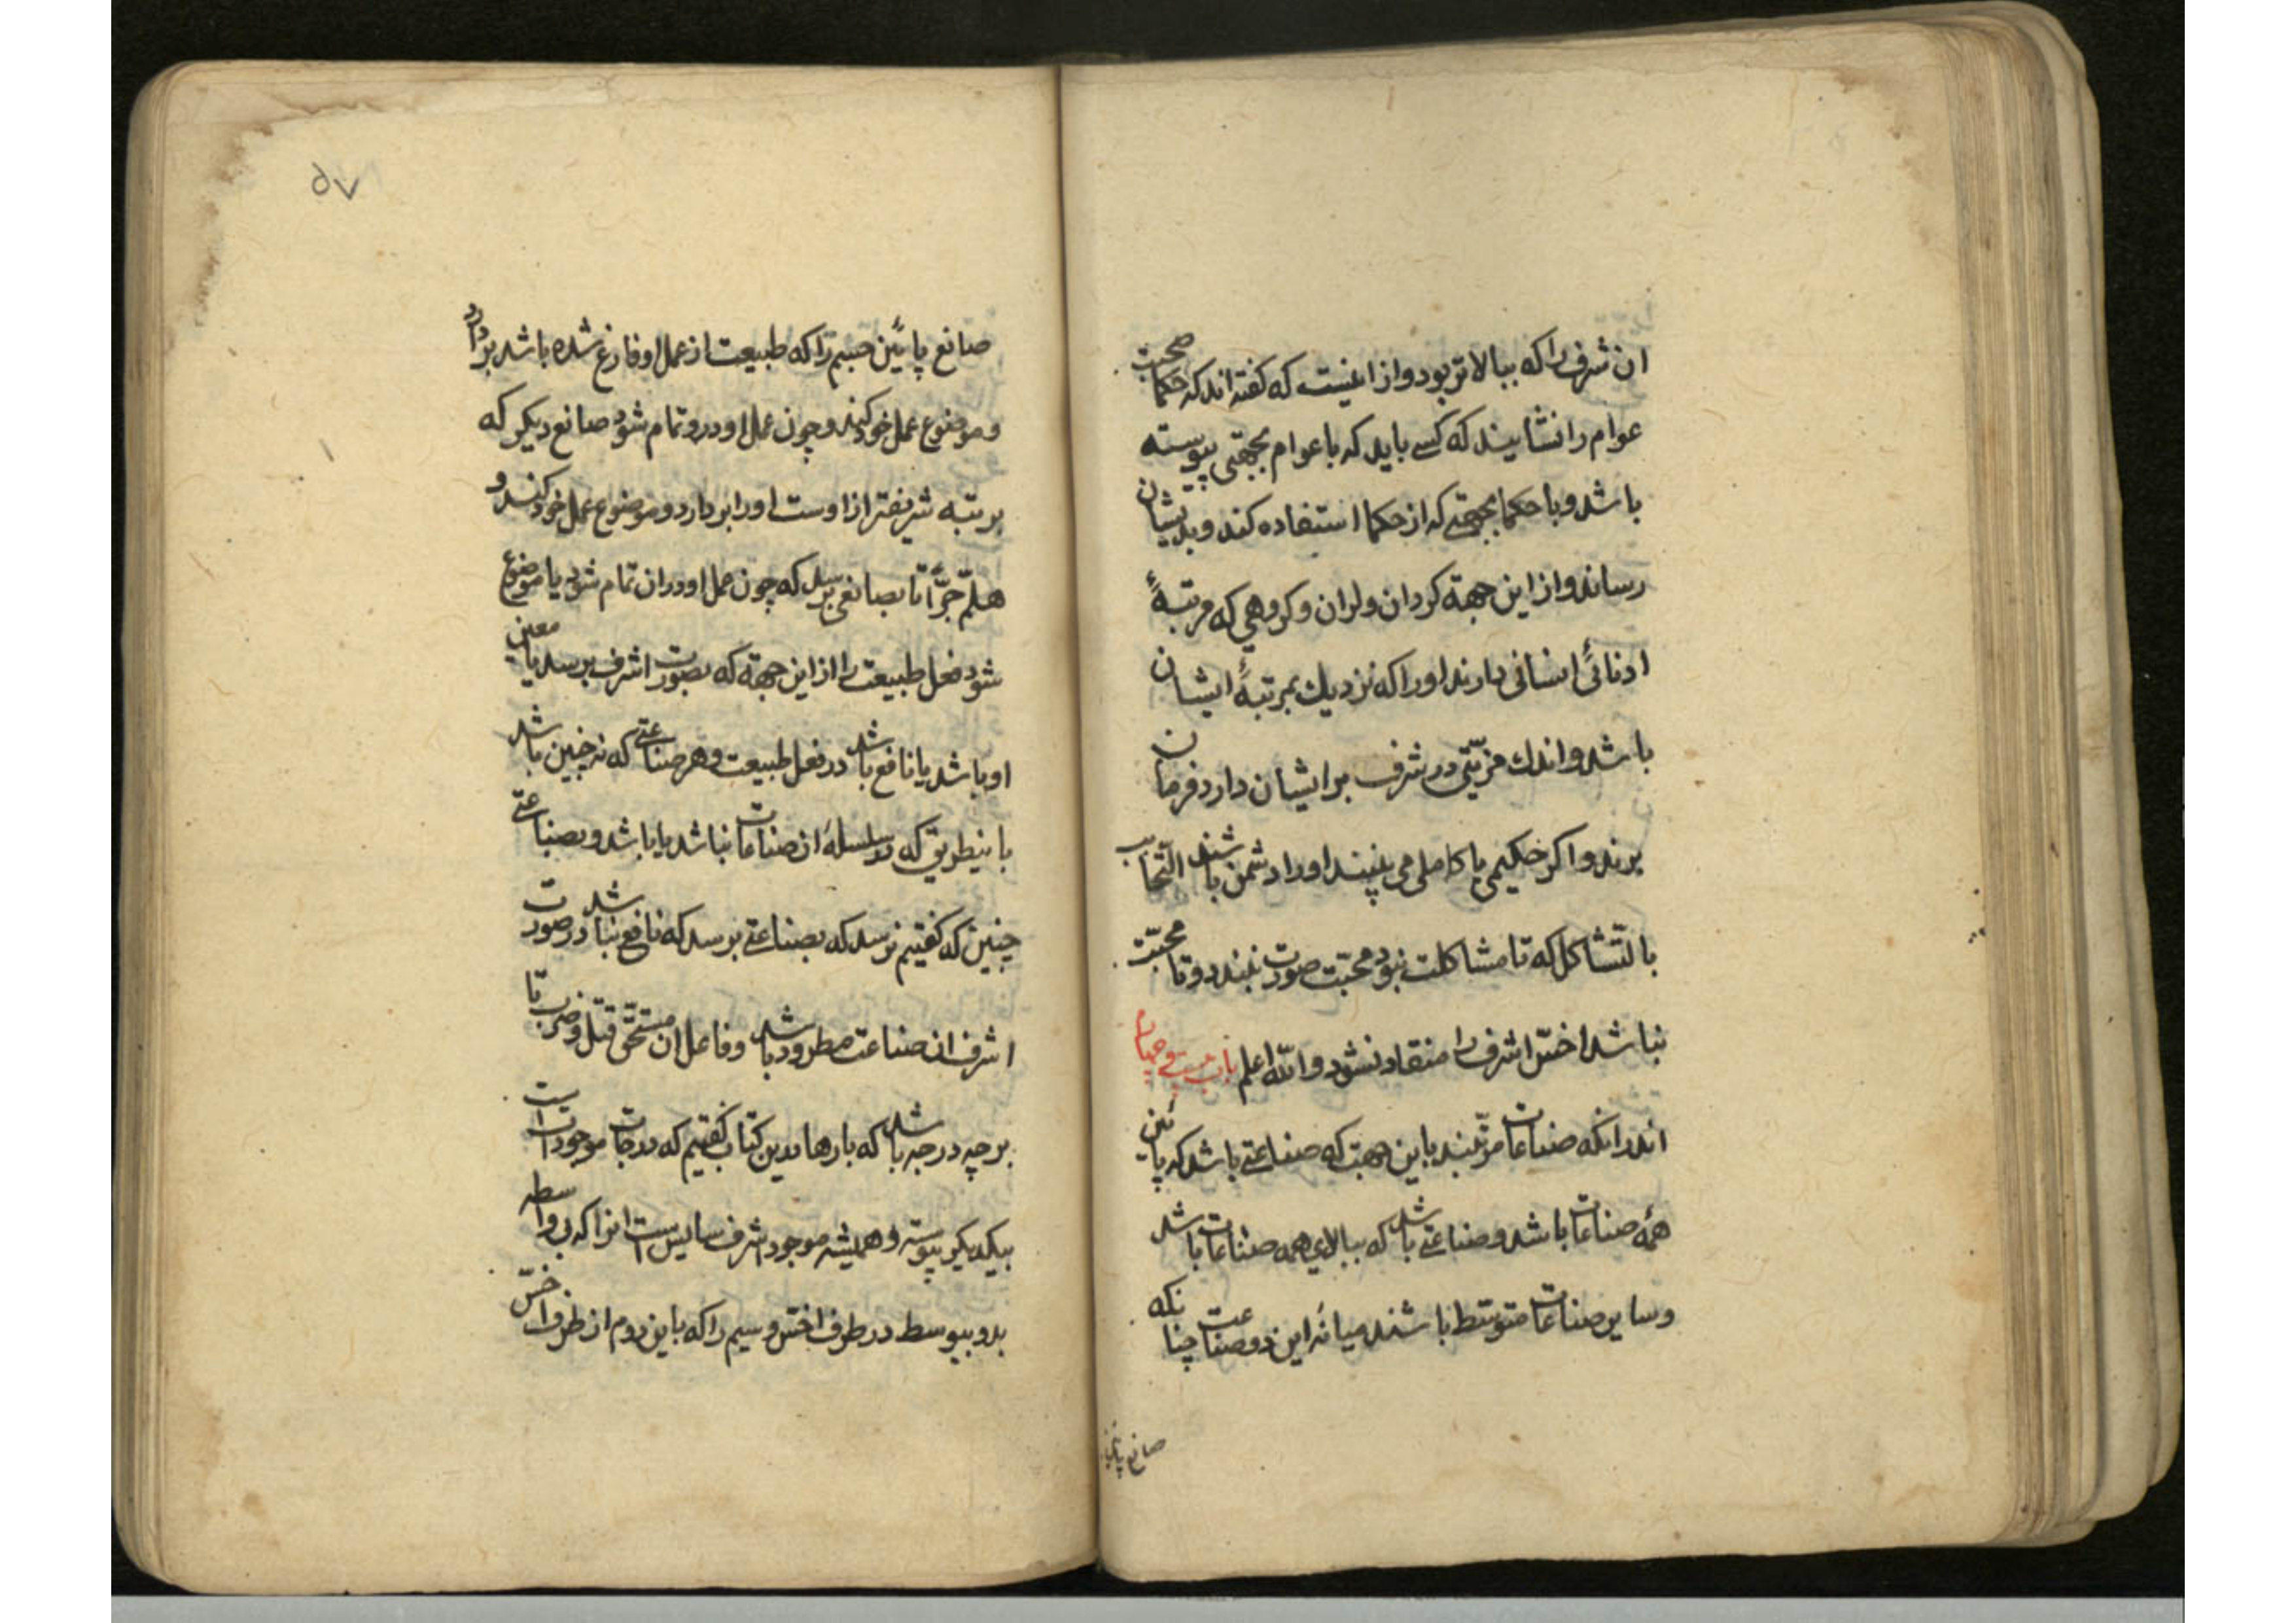 ان شرف را که ببالاتر بود و از اینست که کفته‌اند که حکما صحبت
عوام را نشایند که کسے باید که با عوام بجهتی پیوسته
باشد و با حکما بجهتے که از حکما استفاده کند و بدیشان
رساند و از این جهة کردان و لران و کروهی که مرتبهٔ
ادنائ انسانی دارند اورا که نزدیك بمرتبهٔ ایشان
باشد و اندك مزیّتی در شرف بر ایشان دارد فرمان
برند و اکر حکیمی یا کاملی می بینند اورا دشمن باشند التّحابب
بالتّشاکل که تا مشاکلت نبود محبّت صورت نبندد و تا محبّت
نباشد اخسّ اشرف را منقاد نشود و اللّه اعلم باب بیست و چهار
اندر انکه صناعات مرتّبند باین جهت که صناعتے باشد که پائین
همۀ صناعات باشد و صناعتے باشد که ببالای همه صناعات باشد
و سایر صناعات متوسّط باشند میانۀ این دو صناعت چنانکه
صانع پائین
۵۷
صانع پائین جسم را که طبیعت از عمل او فارغ شده باشد بردارد
و موضوع عمل خود کند و چون عمل او درو تمام شود صانع دیکر که
برتبه شریفتر از اوست اورا بر دارد و موضوع عمل خود کند و
هلمّ جرّاً تا بصانعی برسد که چون عمل او دران تمام شود یا موضوع
شود فعل طبیعت را از این جهة که بصورت اشرف برسد یا معین
او باشد یا نافع باشد در فعل طبیعت و هر صناعتے که نه چنین باشد
باینطریق که در سلسلۀ ان صناعات نباشد یا باشد و بصناعتے
چنین که کفتیم نرسد که بصناعتے برسد که نافع نباشد در صورت
اشرف ان صناعت مطرود باشد و فاعل ان مستحقّ قتل و ضرب تا
بر چه درجه باشد که بارها بدین کتاب کفتیم که درجات موجودات است
بیکدیکر پیوسته و همیشه موجود اشرف سایس است انرا که بی واسطه
بدو پیوسط در طرف اخسّ و سیم را که باین دوم از طرف اخسّ